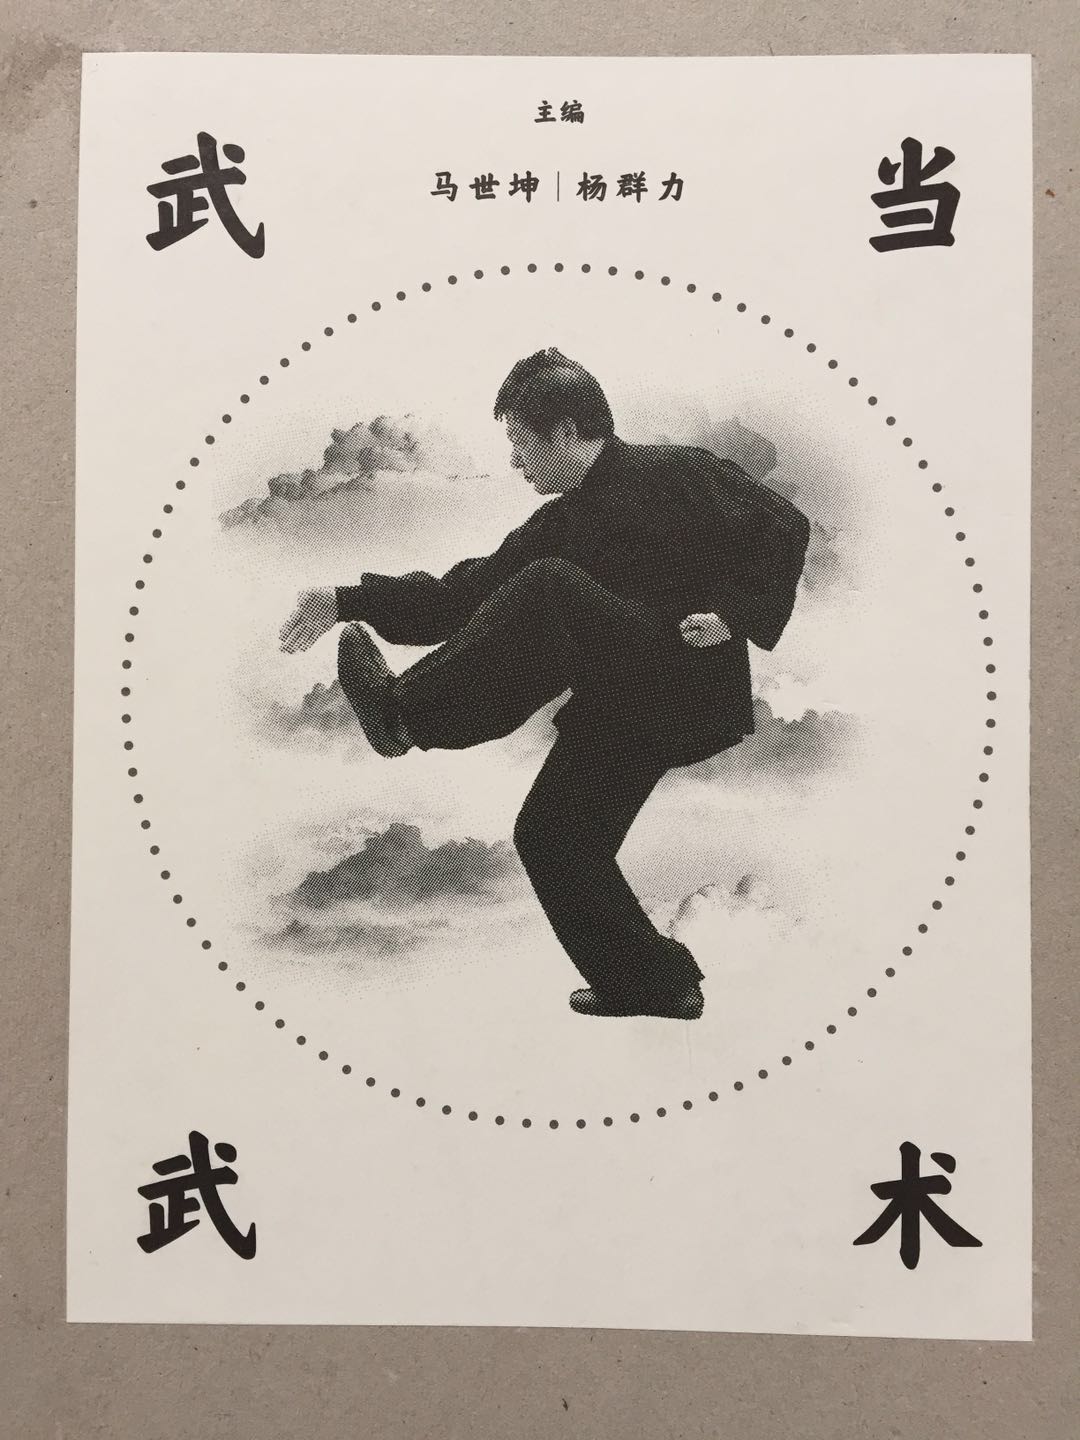 主编
武当
马世坤|杨群力
武术